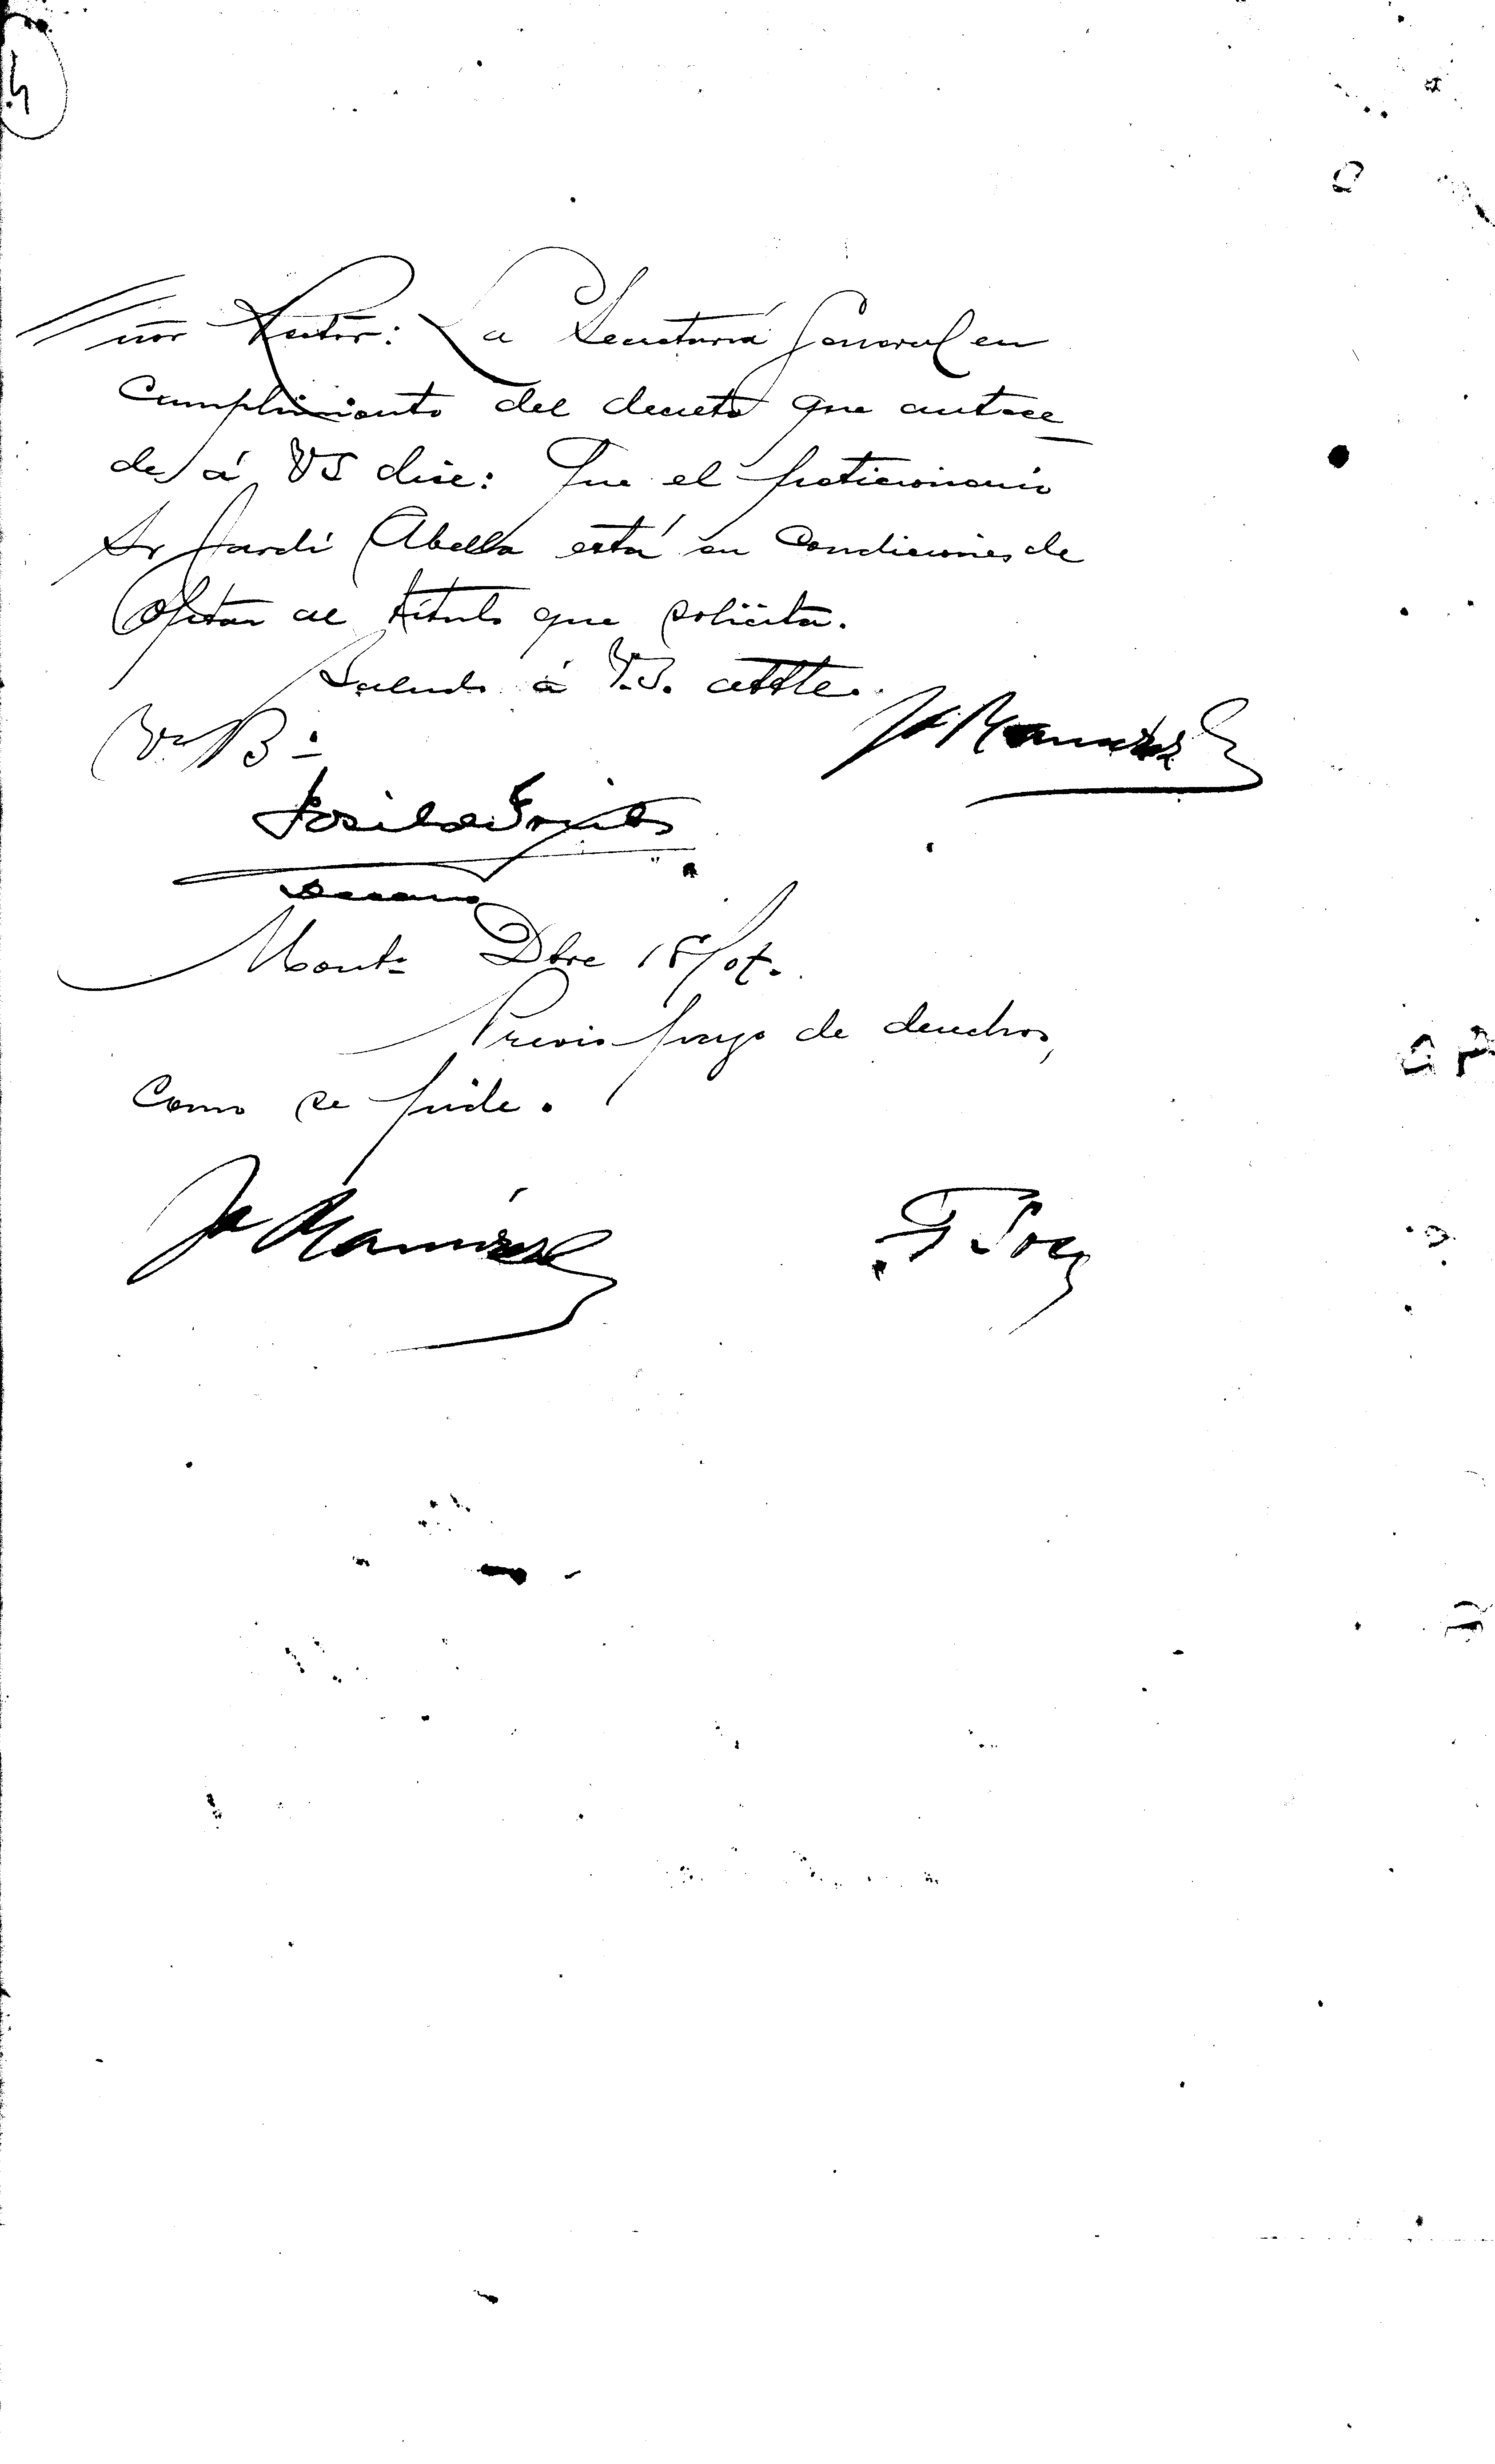 Señor Rector: La Secretaría General en
cumplimiento del decreto que antece
de á VS dice: Que el peticionario
Sr Jardi Abella está en condiciones de
optar al título que solicita.
Saludo á V.S. atte.
Vo Bo
Montº Dbre 18/07.
Previo pago de derechos,
como se pide.